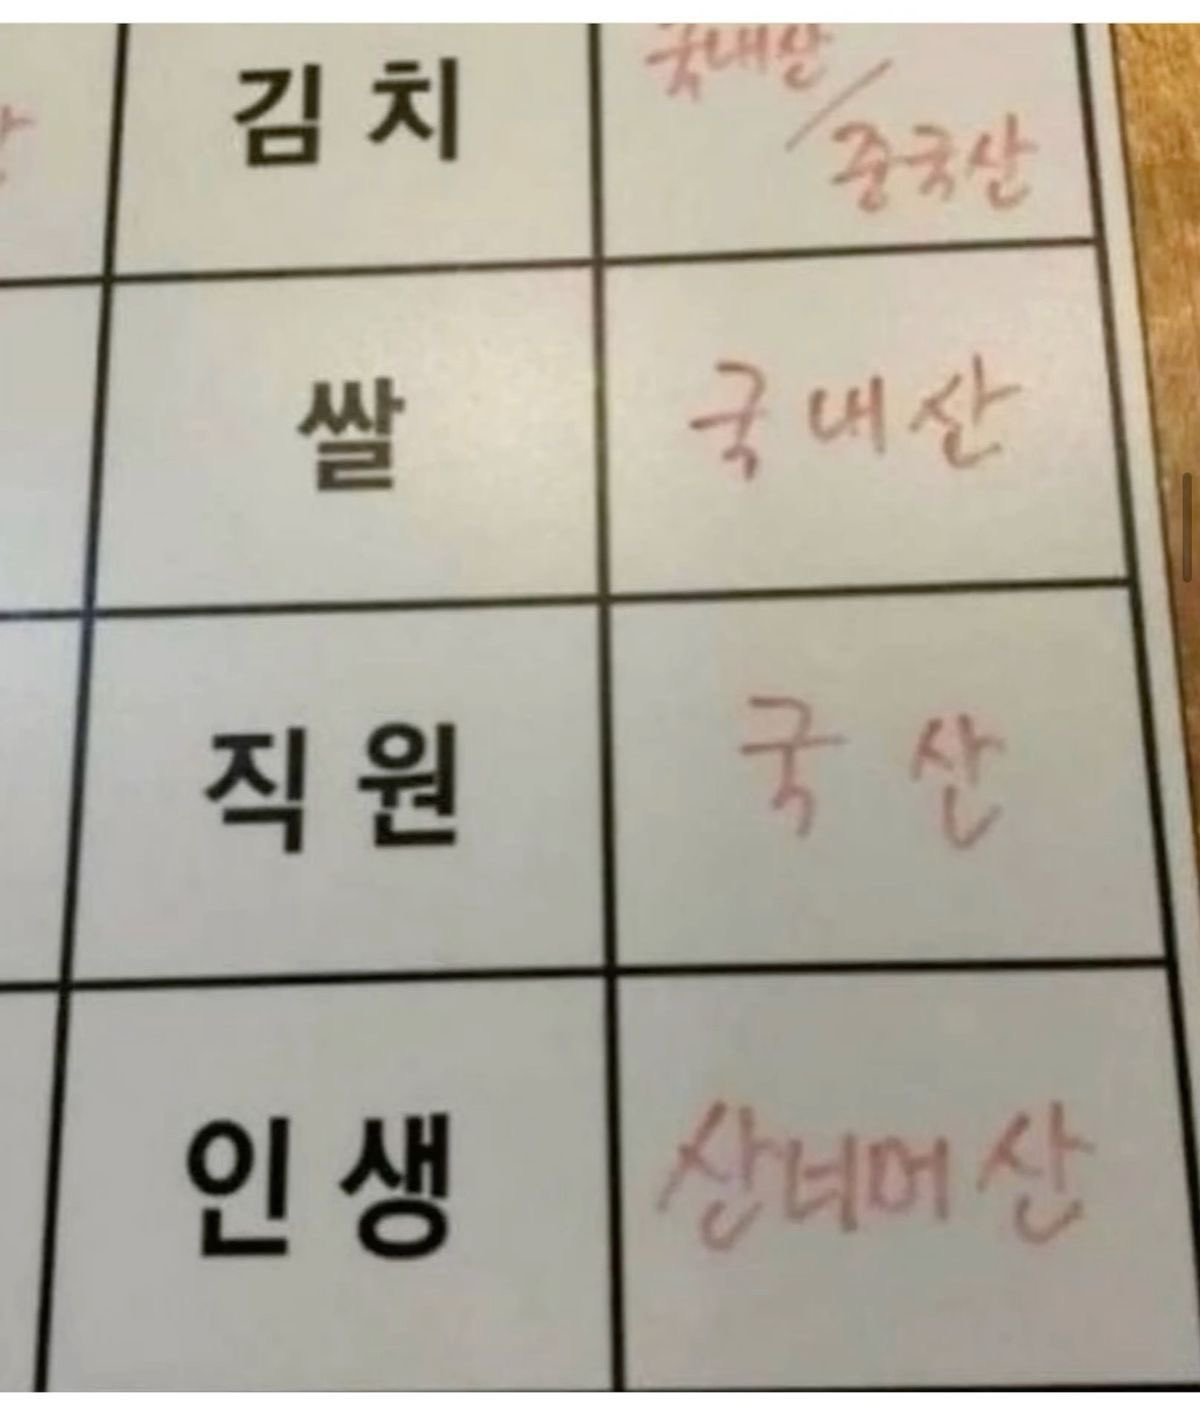 김치 국내산/중국산
쌀 국내산
직원 국산
인생 산너머산